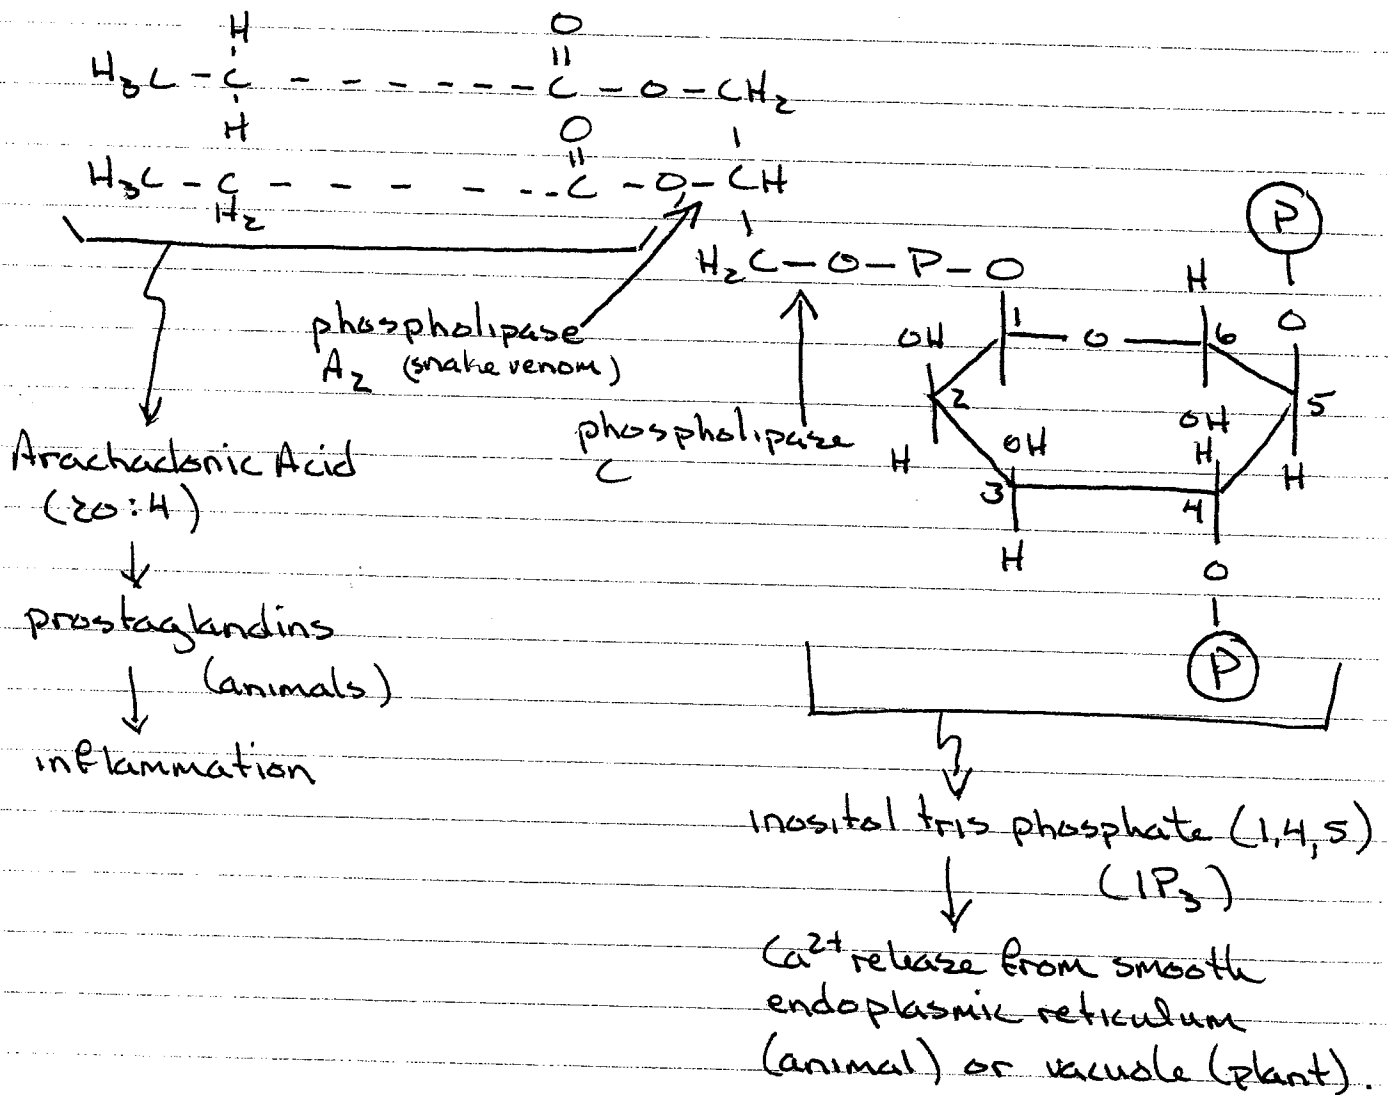 H
O
H₃C - C - - - - - - - C - O - CH₂
H
O
H₃C - C - - - - - - - C - O - CH
H₂
P
H₂C - O - P - O
H
O
phospholipase
A₂ (snake venom)
OH
1
O
6
2
5
phospholipase
C
H
OH
OH
H
3
4
H
H
O
P
Arachadonic Acid
(20:4)
prostaglandins
(animals)
inflammation
inositol tris phosphate (1,4,5)
(IP₃)
Ca²⁺ release from smooth
endoplasmic reticulum
(animal) or vacuole (plant).